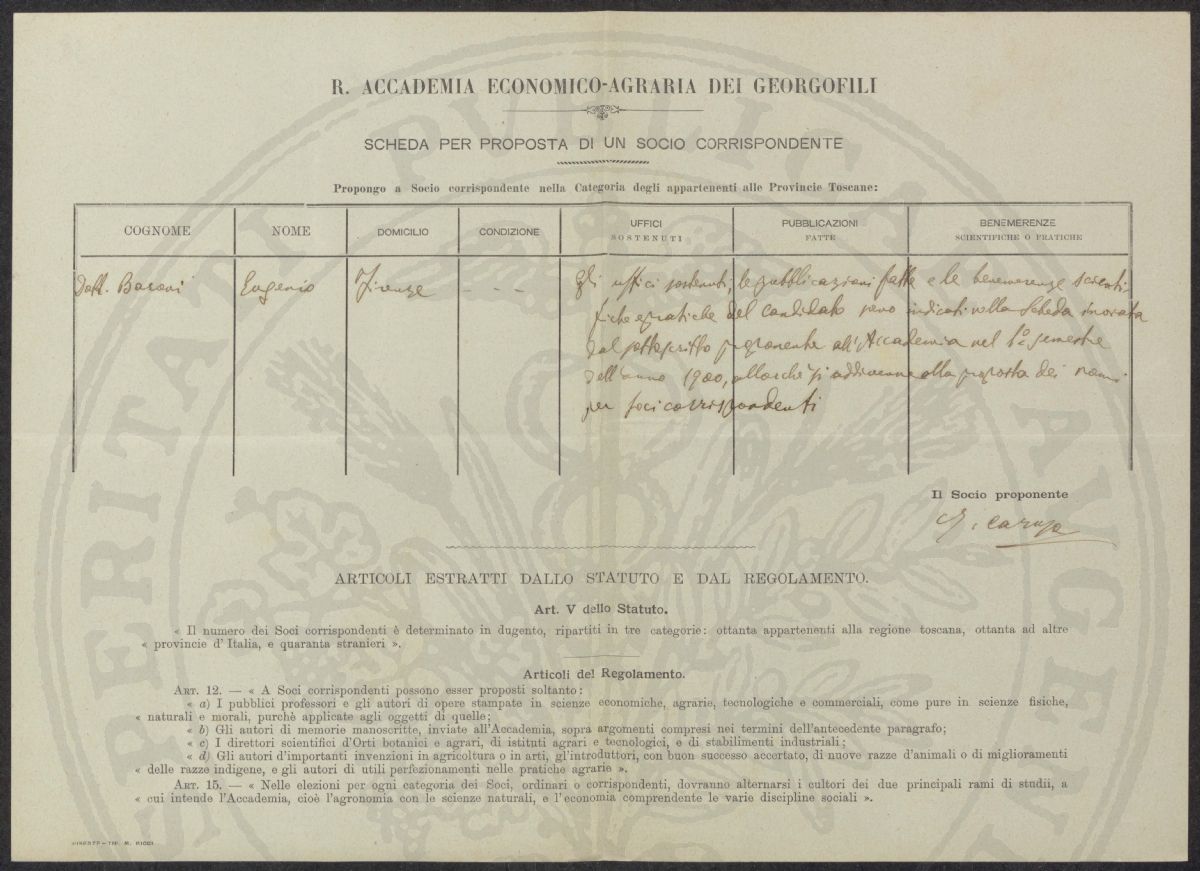 R. ACCADEMIA ECONOMICO-AGRARIA DEI GEORGOFILI
SCHEDA PER PROPOSTA DI UN SOCIO CORRISPONDENTE
Propongo a Socio corrispondente nella Categoria degli appartenenti alle Provincie Toscane:
COGNOME NOME DOMICILIO CONDIZIONE UFFICI SOSTENUTI PUBBLICAZIONI FATTE BENEMERENZE SCIENTIFICHE O PRATICHE
Dott. Baroni Eugenio Firenze - - - Gli uffici sostenuti, le pubblicazioni fatte e le benemerenze scienti
fiche e pratiche del candidato sono indicati nella scheda inviata
dal sottoscritto proponente all'Accademia nel 1° semestre
dell'anno 1900, allorchè si addivenne alla proposta dei nomi
per soci corrispondenti
Il Socio proponente
G. Caruso
ARTICOLI ESTRATTI DALLO STATUTO E DAL REGOLAMENTO.
Art. V dello Statuto.
« Il numero dei Soci corrispondenti è determinato in dugento, ripartiti in tre categorie: ottanta appartenenti alla regione toscana, ottanta ad altre
« provincie d'Italia, e quaranta stranieri ».
Articoli del Regolamento.
ART. 12. — « A Soci corrispondenti possono esser proposti soltanto:
« a) I pubblici professori e gli autori di opere stampate in scienze economiche, agrarie, tecnologiche e commerciali, come pure in scienze fisiche,
« naturali e morali, purchè applicate agli oggetti di quelle;
« b) Gli autori di memorie manoscritte, inviate all'Accademia, sopra argomenti compresi nei termini dell'antecedente paragrafo;
« c) I direttori scientifici d'Orti botanici e agrari, di istituti agrari e tecnologici, e di stabilimenti industriali;
« d) Gli autori d'importanti invenzioni in agricoltura o in arti, gl'introduttori, con buon successo accertato, di nuove razze d'animali o di miglioramenti
« delle razze indigene, e gli autori di utili perfezionamenti nelle pratiche agrarie ».
ART. 15. — « Nelle elezioni per ogni categoria dei Soci, ordinari o corrispondenti, dovranno alternarsi i cultori dei due principali rami di studii, a
« cui intende l'Accademia, cioè l'agronomia con le scienze naturali, e l'economia comprendente le varie discipline sociali ».
FIRENZE — TIP. M. RICCI